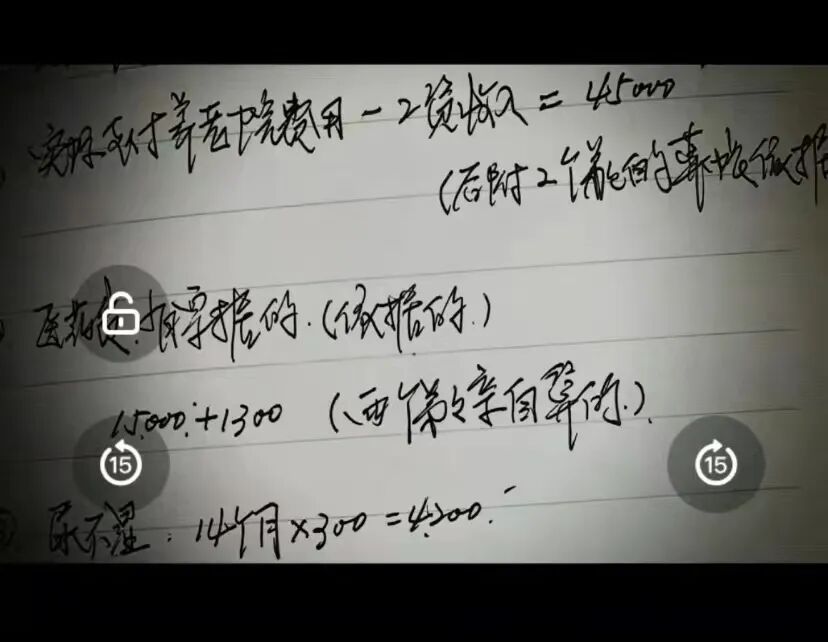 实际支付养老院费用-工资收入=45000
(后附2个弟的算收依据
医药费.有票据的.(依据的.)
15.000.+1300 (两个弟弟亲自算的.)
15
15
尿不湿:14个月×300=4.200.-